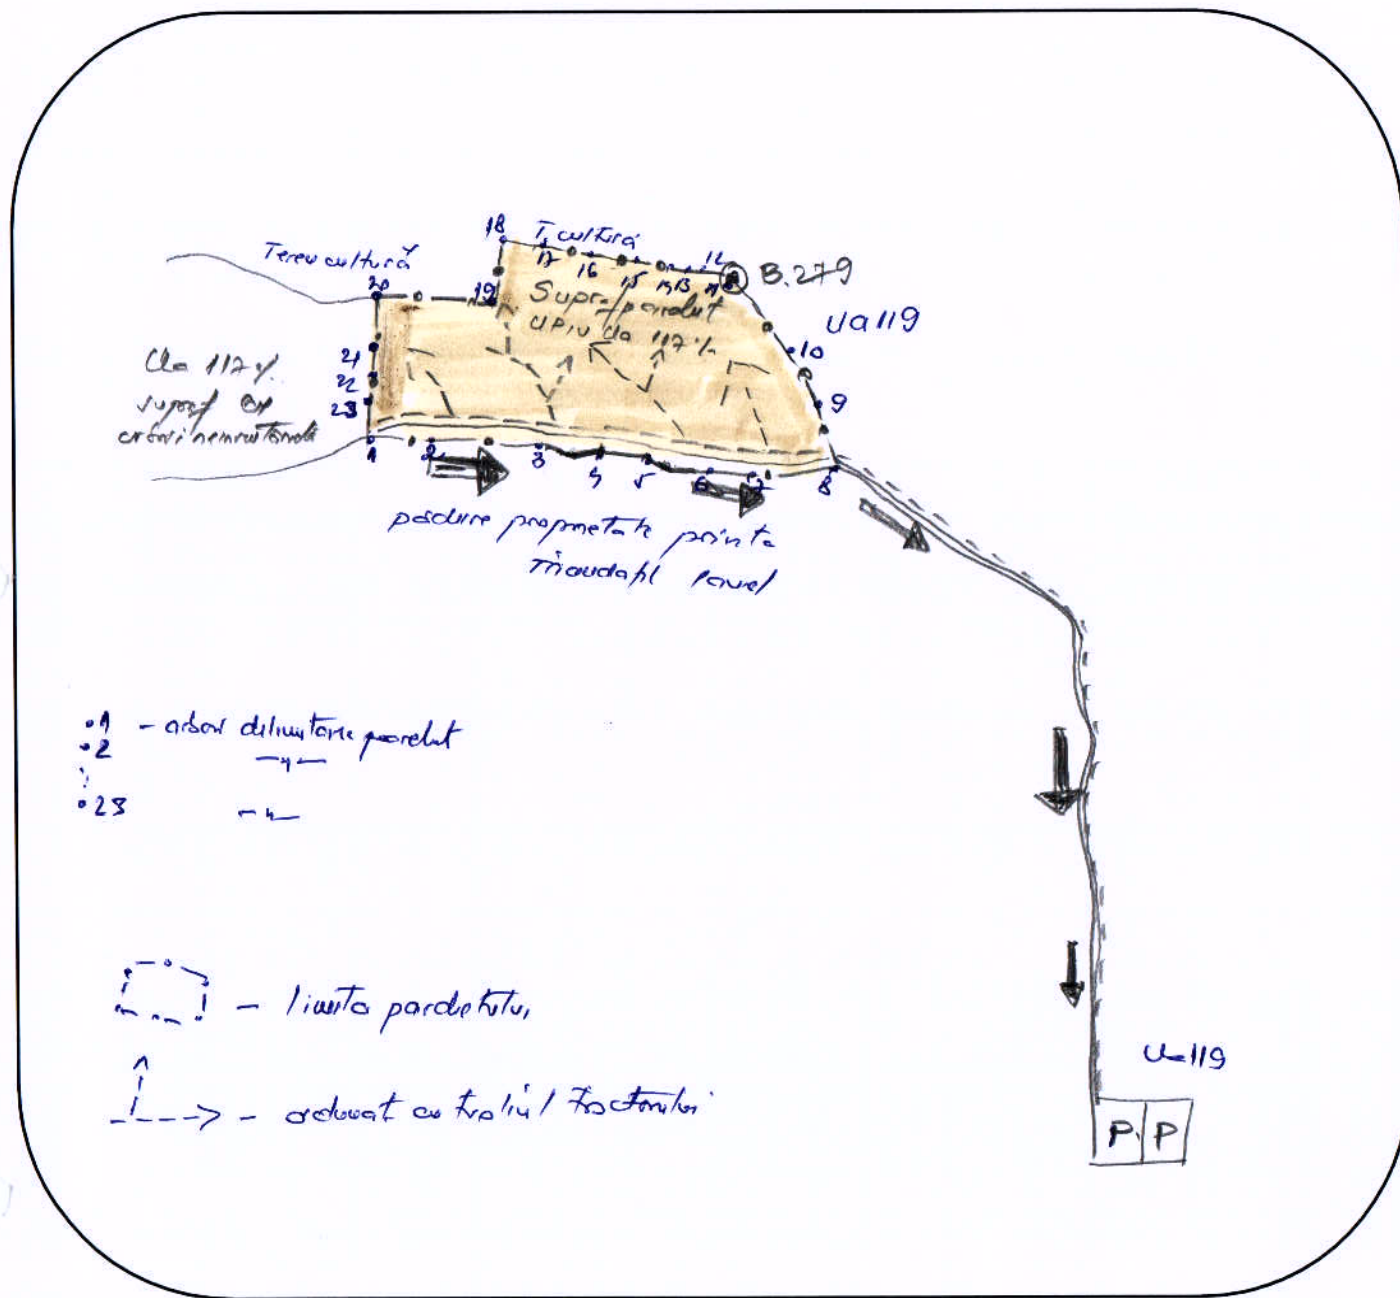 18
T. cultură
Teren cultură
20
17
16
15
14
13
12
11
B. 279
19
Supr. parchet
UP IV Ua 117 %
Ua 119
10
9
Ua 117 %
supraf cu
arbori nemarcati
21
22
23
1
2
3
4
5
6
7
8
padure proprietate privata
Pavel
•1 - arbori delimitare parchet
•2 -"-
•23 -"-
- limita parchetului
- adunat cu troliul tractorului
Ua 119
P. P